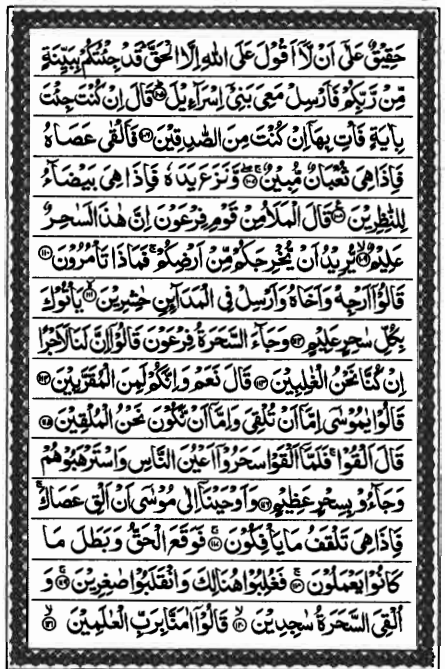 حَقِيْقٌ عَلٰٓى اَنْ لَّاۤ اَقُوْلَ عَلَى اللّٰهِ اِلَّا الْحَقَّ ؕ قَدْ جِئْتُكُمْ بِبَيِّنَةٍ
مِّنْ رَّبِّكُمْ فَاَرْسِلْ مَعِىَ بَنِىْۤ اِسْرَآءِيْلَ ؕ‏﴿۱۰۵﴾ قَالَ اِنْ كُنْتَ جِئْتَ
بِاٰيَةٍ فَاْتِ بِهَاۤ اِنْ كُنْتَ مِنَ الصّٰدِقِيْنَ ﴿۱۰۶﴾ فَاَلْقٰى عَصَاهُ
فَاِذَا هِىَ ثُعْبَانٌ مُّبِيْنٌ ۚۖ ﴿۱۰۷﴾ وَّنَزَعَ يَدَهٗ فَاِذَا هِىَ بَيْضَآءُ
لِلنّٰظِرِيْنَ ﴿۱۰۸﴾ قَالَ الْمَلَاُ مِنْ قَوْمِ فِرْعَوْنَ اِنَّ هٰذَا لَسٰحِرٌ
عَلِيْمٌ ۙ﴿۱۰۹﴾ يُّرِيْدُ اَنْ يُّخْرِجَكُمْ مِّنْ اَرْضِكُمْ ۚ فَمَاذَا تَاْمُرُوْنَ ﴿۱۱۰﴾
قَالُوْۤا اَرْجِهْ وَاَخَاهُ وَاَرْسِلْ فِى الْمَدَآئِنِ حٰشِرِيْنَ ۙ﴿۱۱۱﴾ يَاْتُوْكَ
بِكُلِّ سٰحِرٍ عَلِيْمٍ ﴿۱۱۲﴾ وَجَآءَ السَّحَرَةُ فِرْعَوْنَ قَالُوْۤا اِنَّ لَنَا لَاَجْرًا
اِنْ كُنَّا نَحْنُ الْغٰلِبِيْنَ ﴿۱۱۳﴾ قَالَ نَعَمْ وَاِنَّكُمْ لَمِنَ الْمُقَرَّبِيْنَ ﴿۱۱۴﴾
قَالُوْا يٰمُوْسٰٓى اِمَّاۤ اَنْ تُلْقِىَ وَاِمَّاۤ اَنْ نَّكُوْنَ نَحْنُ الْمُلْقِيْنَ ﴿۱۱۵﴾
قَالَ اَلْقُوْا ۚ فَلَمَّاۤ اَلْقَوْا سَحَرُوْۤا اَعْيُنَ النَّاسِ وَاسْتَرْهَبُوْهُمْ
وَجَآءُوْ بِسِحْرٍ عَظِيْمٍ ﴿۱۱۶﴾ وَاَوْحَيْنَاۤ اِلٰى مُوْسٰٓى اَنْ اَلْقِ عَصَاكَ ۚ
فَاِذَا هِىَ تَلْقَفُ مَا يَاْفِكُوْنَ ۚ﴿۱۱۷﴾ فَوَقَعَ الْحَقُّ وَبَطَلَ مَا
كَانُوْا يَعْمَلُوْنَ ۚ﴿۱۱۸﴾ فَغُلِبُوْا هُنَالِكَ وَانْقَلَبُوْا صٰغِرِيْنَ ۚ﴿۱۱۹﴾ وَ
اُلْقِىَ السَّحَرَةُ سٰجِدِيْنَ ۙ﴿۱۲۰﴾ قَالُوْۤا اٰمَنَّا بِرَبِّ الْعٰلَمِيْنَ ۙ﴿۱۲۱﴾